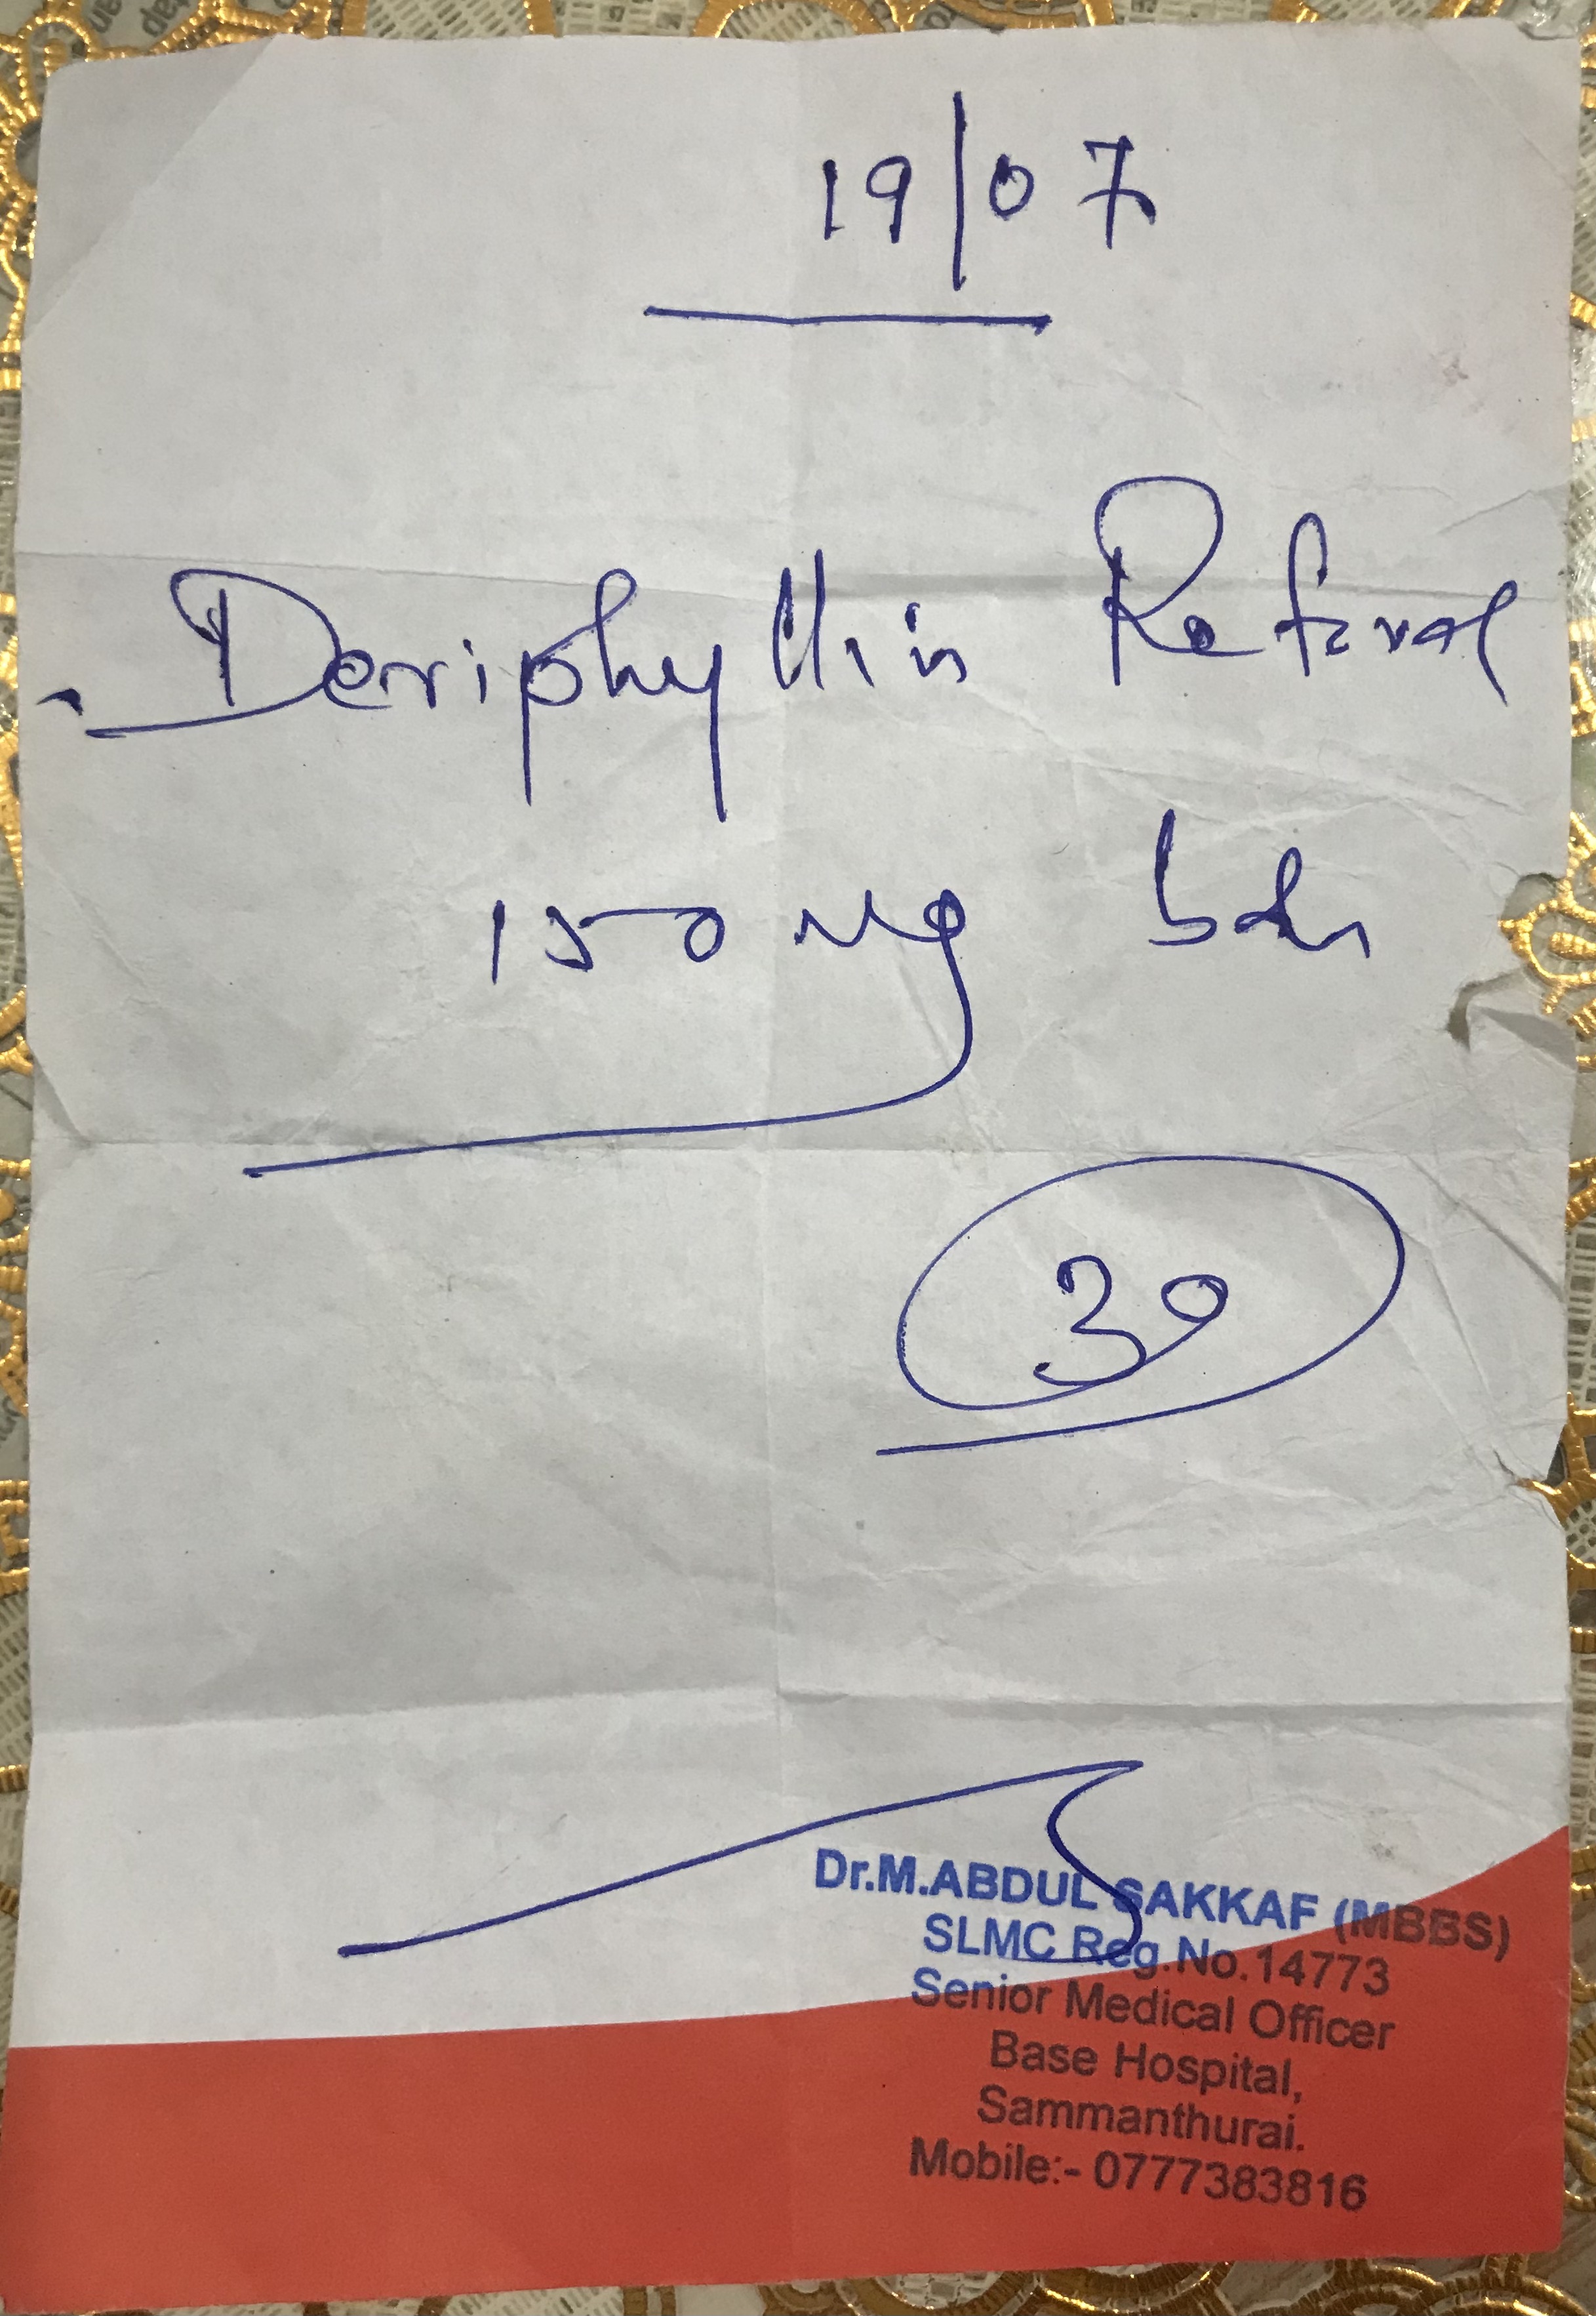 19/07
Deriphyllin Retard
150 mg bd
30
Dr.M.ABDUL SAKKAF (MBBS)
SLMC Reg.No.14773
Senior Medical Officer
Base Hospital,
Sammanthurai.
Mobile:- 0777383816